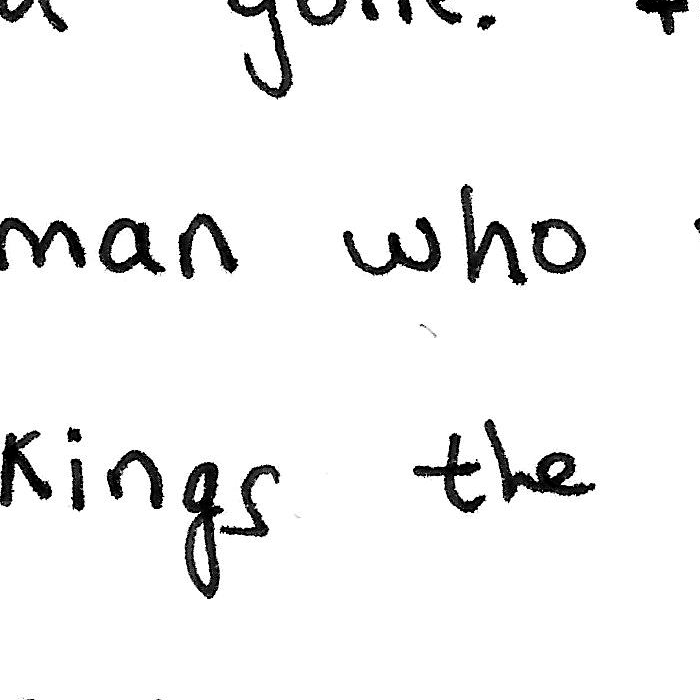 gone.
man who
Kings the